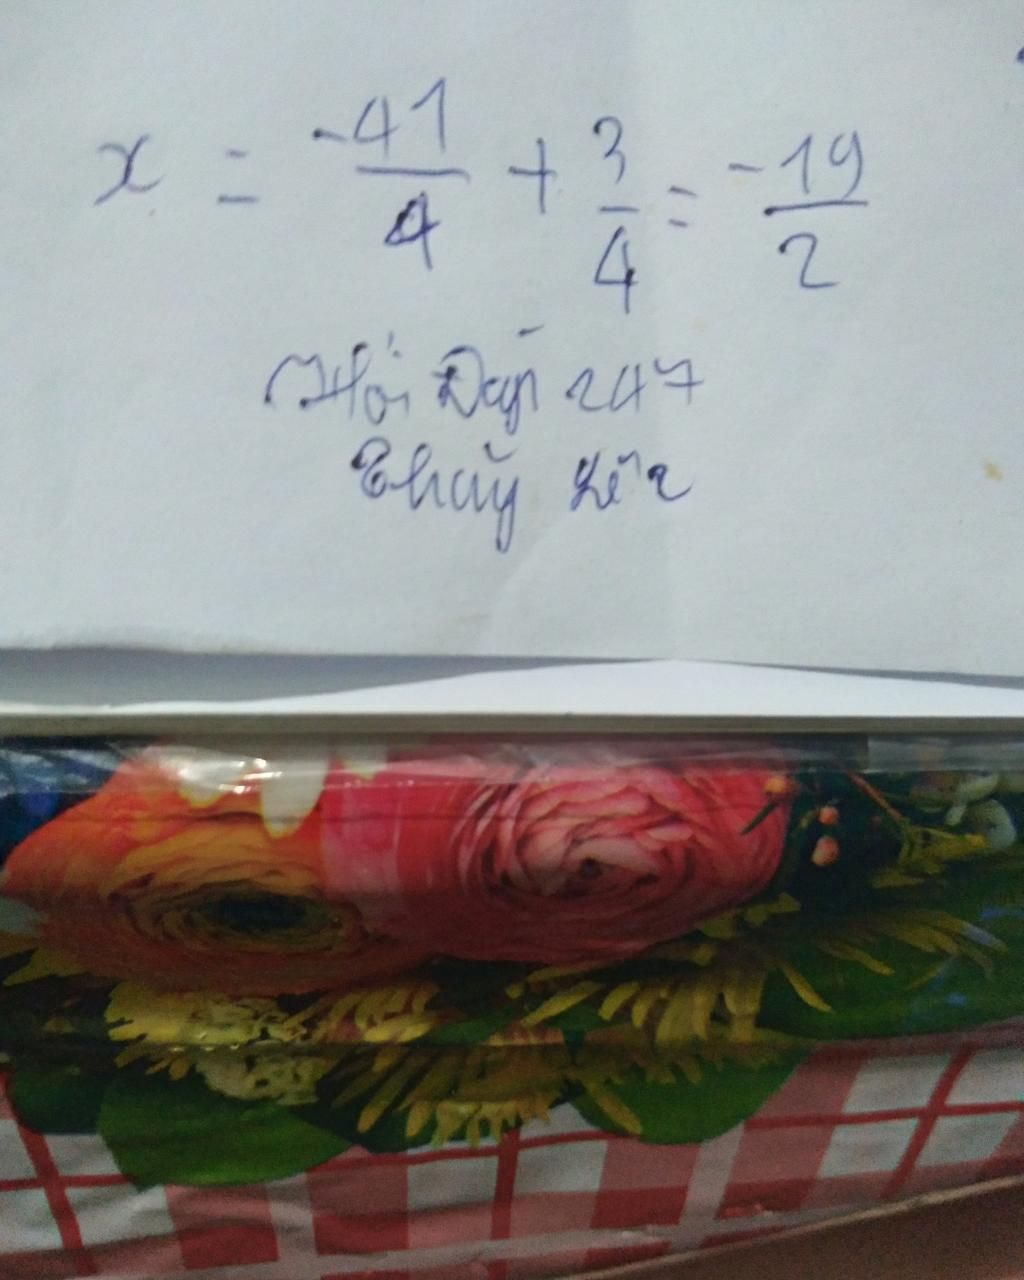 x = -41/4 + 3/4 = -19/2
Hỏi Đáp 247
Thuỷ